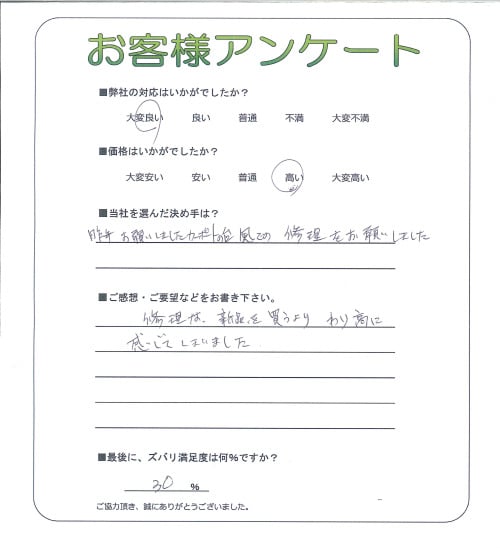 お客様アンケート
■弊社の対応はいかがでしたか？
大変良い 良い 普通 不満 大変不満
■価格はいかがでしたか？
大変安い 安い 普通 高い 大変高い
■当社を選んだ決め手は？
昨年お願いしましたカーポートの台風での修理をお願いしました
■ご感想・ご要望などをお書き下さい。
修理は、新品を買うよりわり高に
感じてしまいました
■最後に、ズバリ満足度は何％ですか？
30 ％
ご協力頂き、誠にありがとうございました。